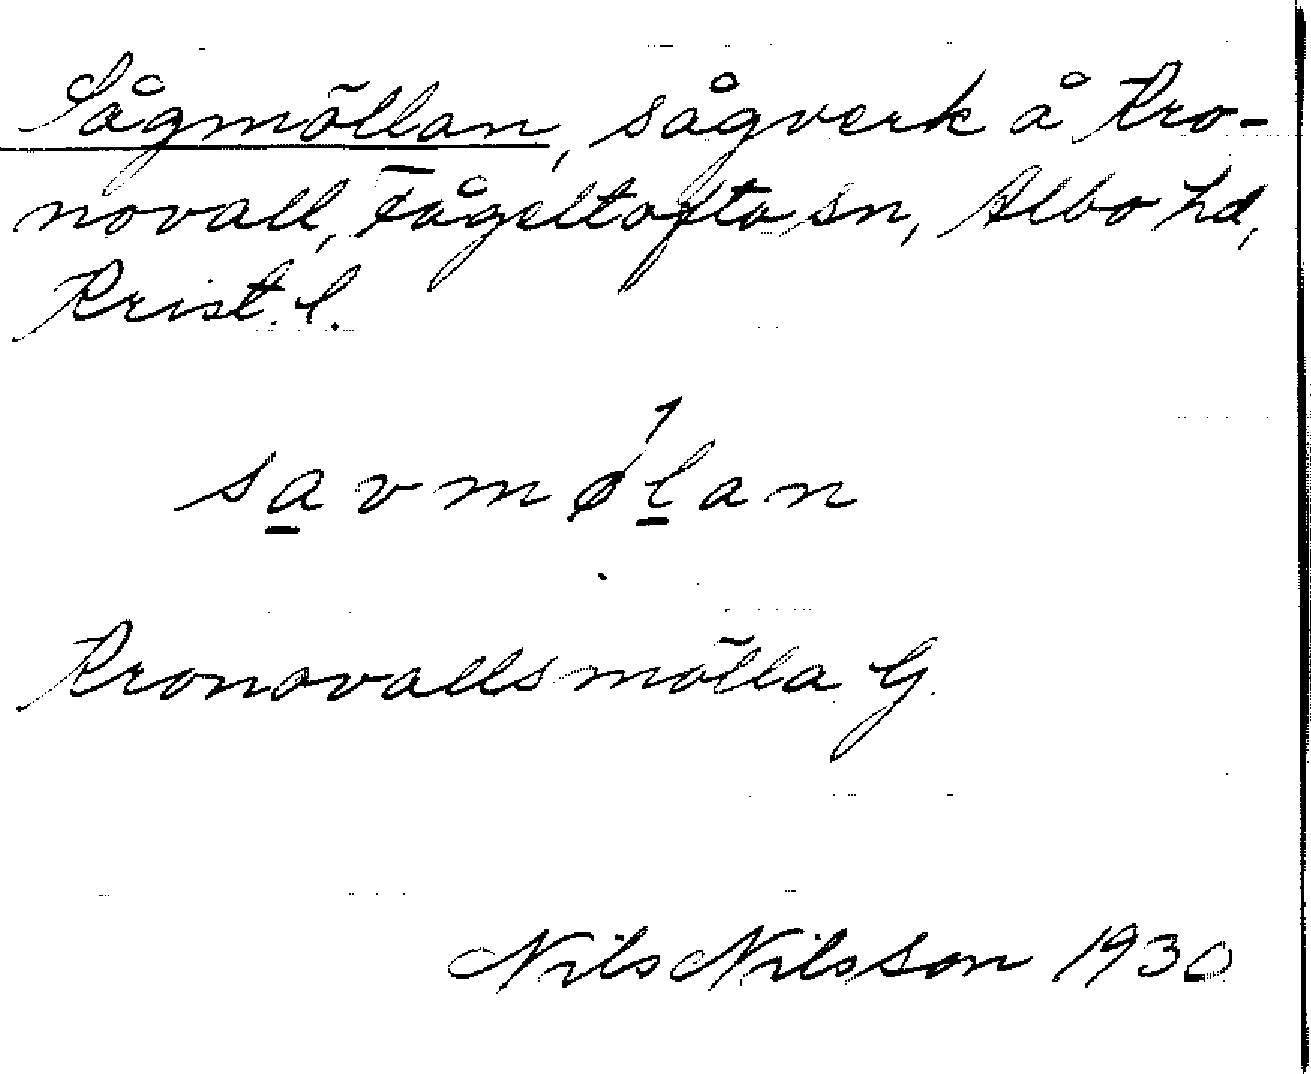 Sågmöllan, sågverk å Kro-
novall, Fågeltofta sn, Albo hd,
Krist. l.
savmølan
Kronovallsmölla G.
Nils Nilsson 1930